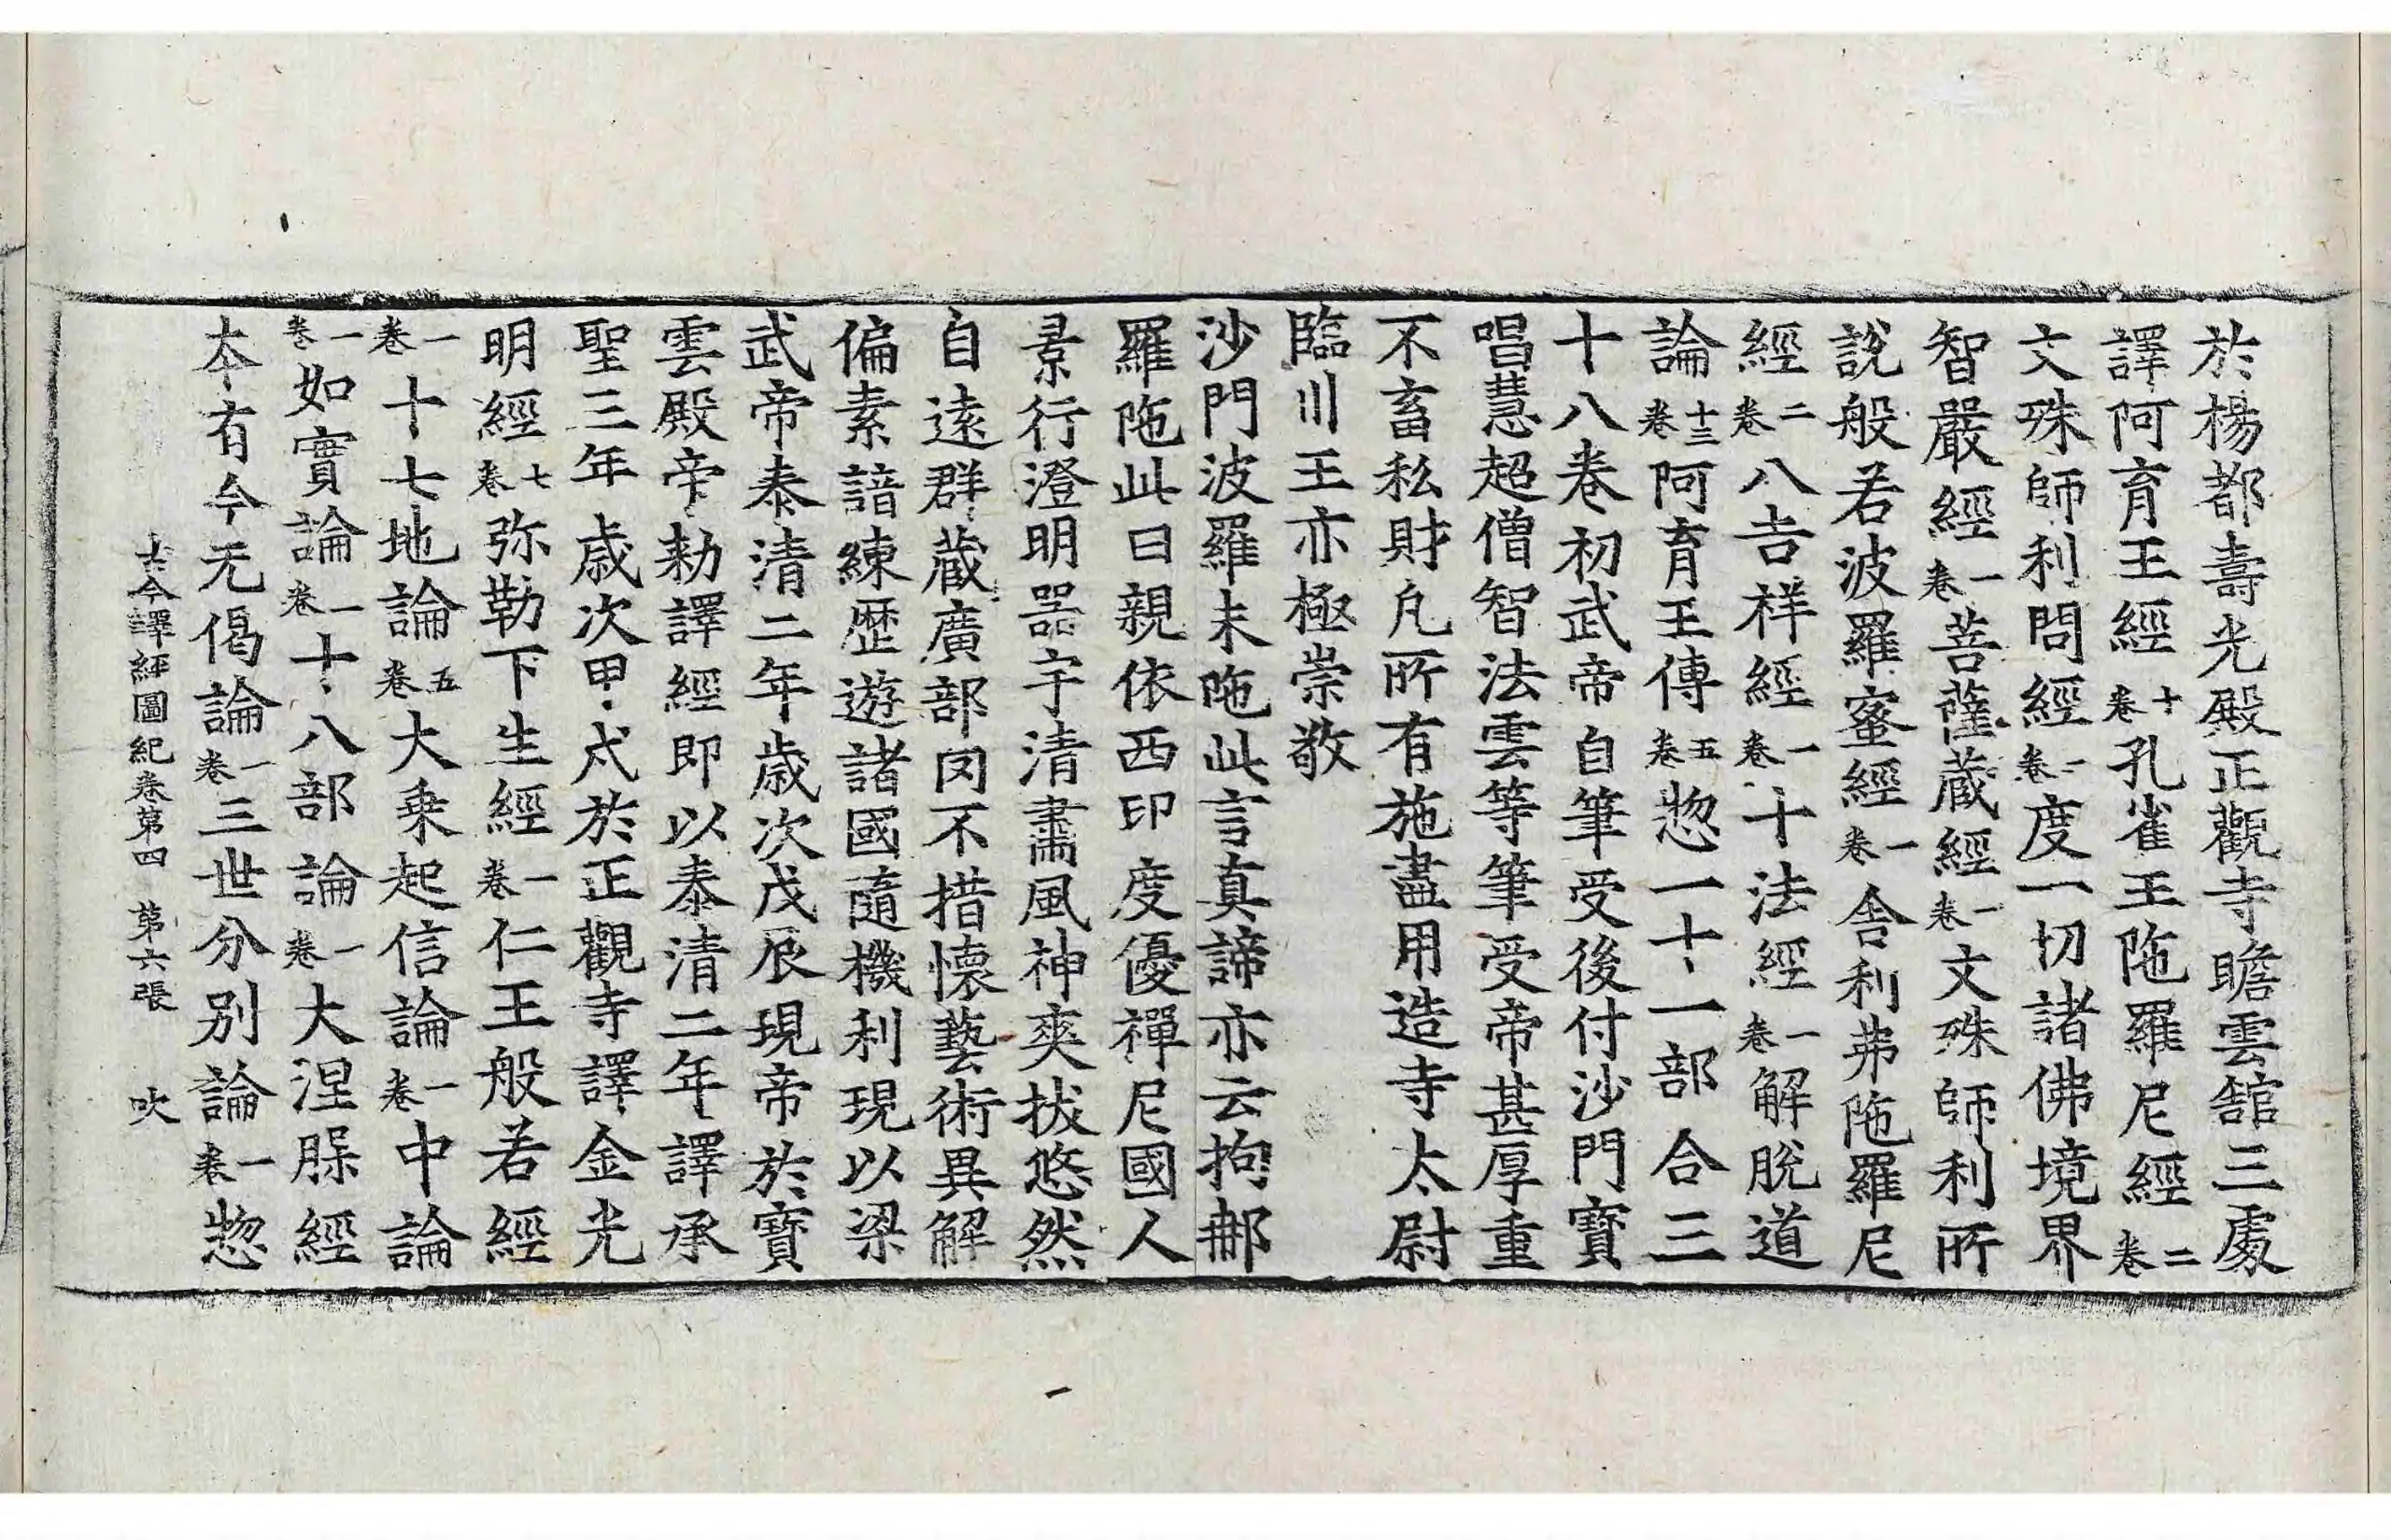 於楊都壽光殿正觀寺瞻雲館三處
譯阿育王經十卷孔雀王陁羅尼經二卷
文殊師利問經一卷度一切諸佛境界
智嚴經一卷菩薩蔵經一卷文殊師利所
說般若波羅蜜經一卷舍利弗陁羅尼
經二卷八吉祥經一卷十法經一卷解脫道
論十三卷阿育王傳五卷惣一十一部合三
十八卷初武帝自筆受後付沙門寶
唱慧超僧智法雲等筆受帝甚厚重
不畜私財凢所有施盡用造寺太尉
臨川王亦極崇敬
沙門波羅末陁此言真諦亦云拘𨙻
羅陁此曰親依西印度優禪尼國人
景行澄明器宇清肅風神爽拔悠然
自遠群蔵廣部罔不措懷藝術異解
偏素諳練歷遊諸國隨機利現以梁
武帝泰清二年歲次戊辰現帝於寶
雲殿帝勑譯經即以泰清二年譯承
聖三年歲次甲戌於正觀寺譯金光
明經七卷弥勒下生經一卷仁王般若經
一卷十七地論五卷大乗起信論一卷中論
一卷如實論一卷十八部論一卷大涅槃經
本有今无偈論一卷三世分別論一卷惣
古今譯經圖紀卷第四 第六張 吹